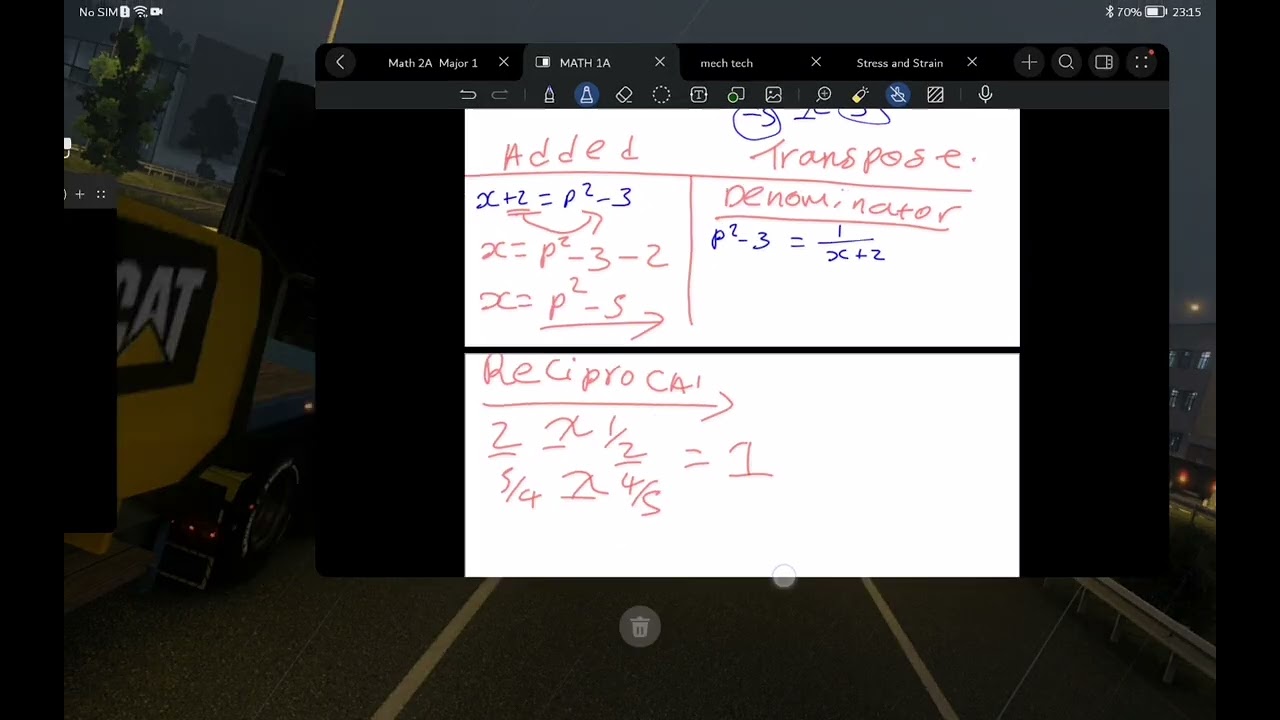 No SIM 70% 23:15
Math 2A Major 1 MATH 1A mech tech Stress and Strain
Added
x+2 = p²-3
x = p²-3-2
x = p²-5
Transpose.
Denominator
p²-3 = 1/x+2
CAT
Reciprocal
2 x 1/2 = 1
5/4 x 4/5